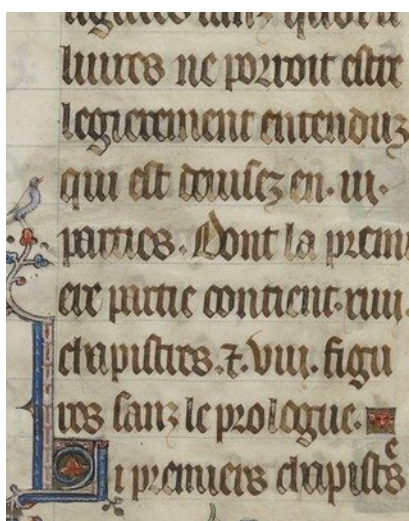 liures ne porroit estre
legierement entenduz
qui est deuisez en .iii.
parties. Dont la premi
ere partie contient .xiiii.
chapistres. ⁊ .viii. figu
res sanz le prologue.
Li premiers chapistres